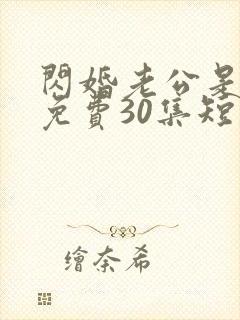 閃婚老公是
免費30集短
繪奈希